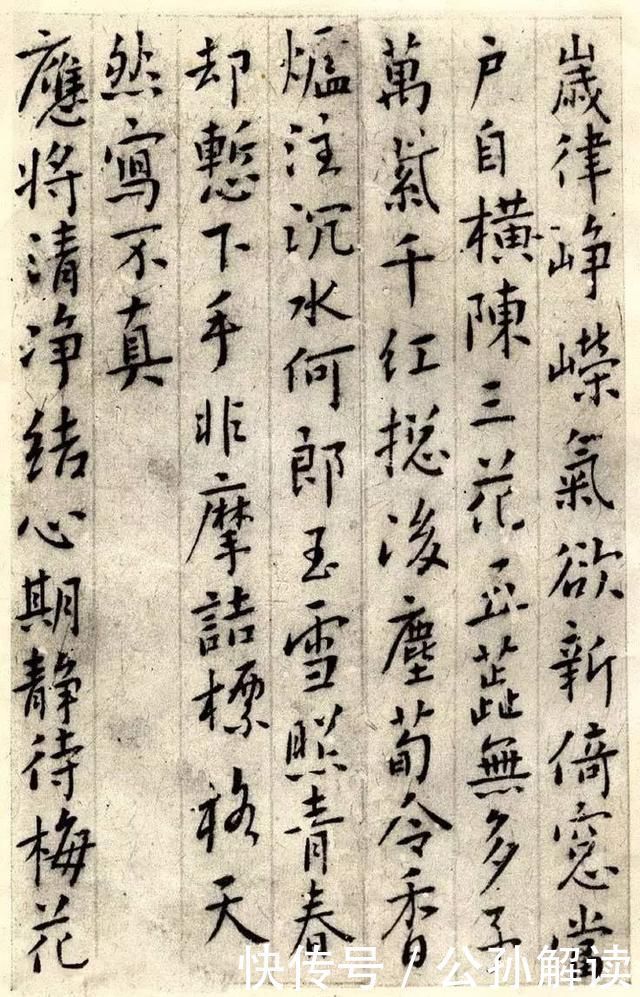 歲律崢嶸氣欲新倚窓當
户自橫陳三花五蕋無多子
萬紫千紅揔後塵荀令香
爐注沉水何郎玉雪照青春
却慙下手非摩詰標格天
然寫不真
應將清净結心期静待梅花
快传号 / 公孙解读